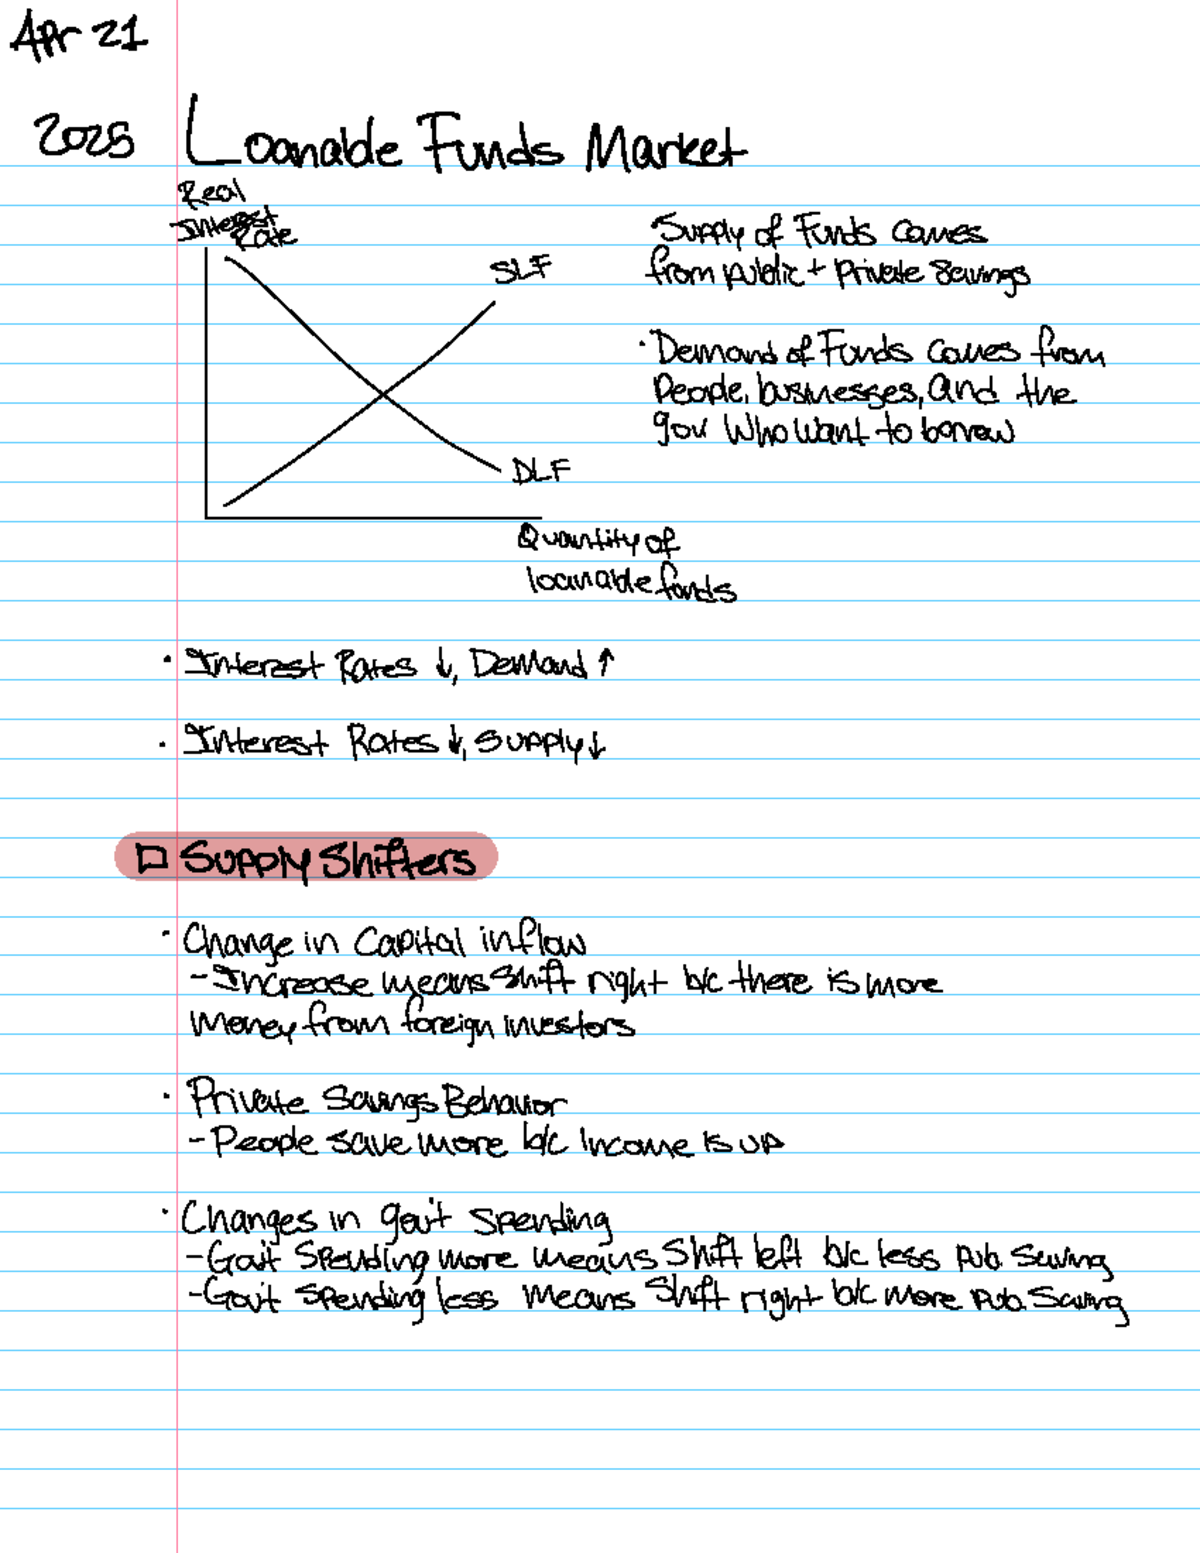 Apr 21
2025
Loanable Funds Market
Real
Interest
Rate
SLF
DLF
Quantity of
loanable funds
Supply of Funds comes
from public + private savings
· Demand of Funds comes from
People, businesses, and the
gov who want to borrow
· Interest Rates ↓, Demand ↑
· Interest Rates ↓, Supply ↓
□ Supply Shifters
· Change in Capital inflow
- Increase means shift right b/c there is more
money from foreign investors
· Private Savings Behavior
- People save more b/c income is up
· Changes in gov't spending
- Gov't spending more means shift left b/c less pub. saving
- Gov't spending less means shift right b/c more pub. saving